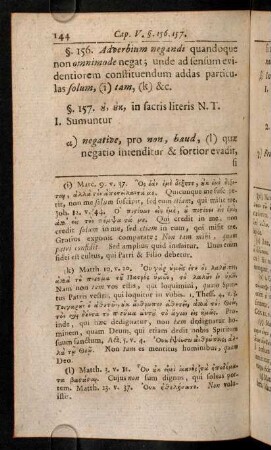 144 Cap. V. §. 156. 157.
§. 156. Adverbium negandi quandoque
non omnimode negat; unde ad sensum evi-
dentiorem constituendum addas particu-
las solum, (i) tam, (k) &c.
§. 157. οὐ, οὐκ, in sacris literis N. T.
I. Sumuntur
a) negative, pro non, haud, (l) quæ
negatio intenditur & fortior evadit,
si
(i) Marc. 9. v. 37. Ὃς ἐὰν ἐμὲ δέξηται, οὐκ ἐμὲ
ἀλλὰ τὸν ἀποστείλαντά με. Quicunque me
non me solum suscipit, sed eum etiam, qui misit me.
Joh. 12. v. 44. Ὁ πιστεύων εἰς ἐμὲ, οὐ πιστεύει εἰς
ἐμὲ Qui credit in me, non
credit solum in me, sed etiam in eum, qui misit me.
Grotius exponit comparate: Non tam mihi, quam
patri credit. Sed amplius quid innuitur. Unus enim
fidei est cultus, qui Patri & Filio debetur.
(k) Matth. 10. v. 20. Οὐ γὰρ ὑμεῖς ἐστε οἱ λαλοῦντες,
ἀλλὰ τὸ πνεῦμα τοῦ Πατρὸς ὑμῶν,
Nam non tam vos estis, qui loquimini, quam Spiri-
tus Patris vestri, qui loquitur in vobis. 1. Thess. 4. v. 8.
Proinde,
qui hæc dedignatur, non tam dedignatur ho-
minem, quam Deum, qui etiam dedit nobis Spiritum
suum sanctum, Act. 5. v. 4. Οὐκ ἐψεύσω ἀνθρώποις, ἀλ-
λὰ τῷ Θεῷ. Non tam es mentitus hominibus, quam
Deo.
(l) Matth. 3. v. 11. Οὗ οὐκ εἰμὶ ἱκανὸς τὰ ὑποδήμα-
τα βαστάσαι. Cujus non sum dignus, qui soleas por-
tem. Matth. 13. v. 17. Non